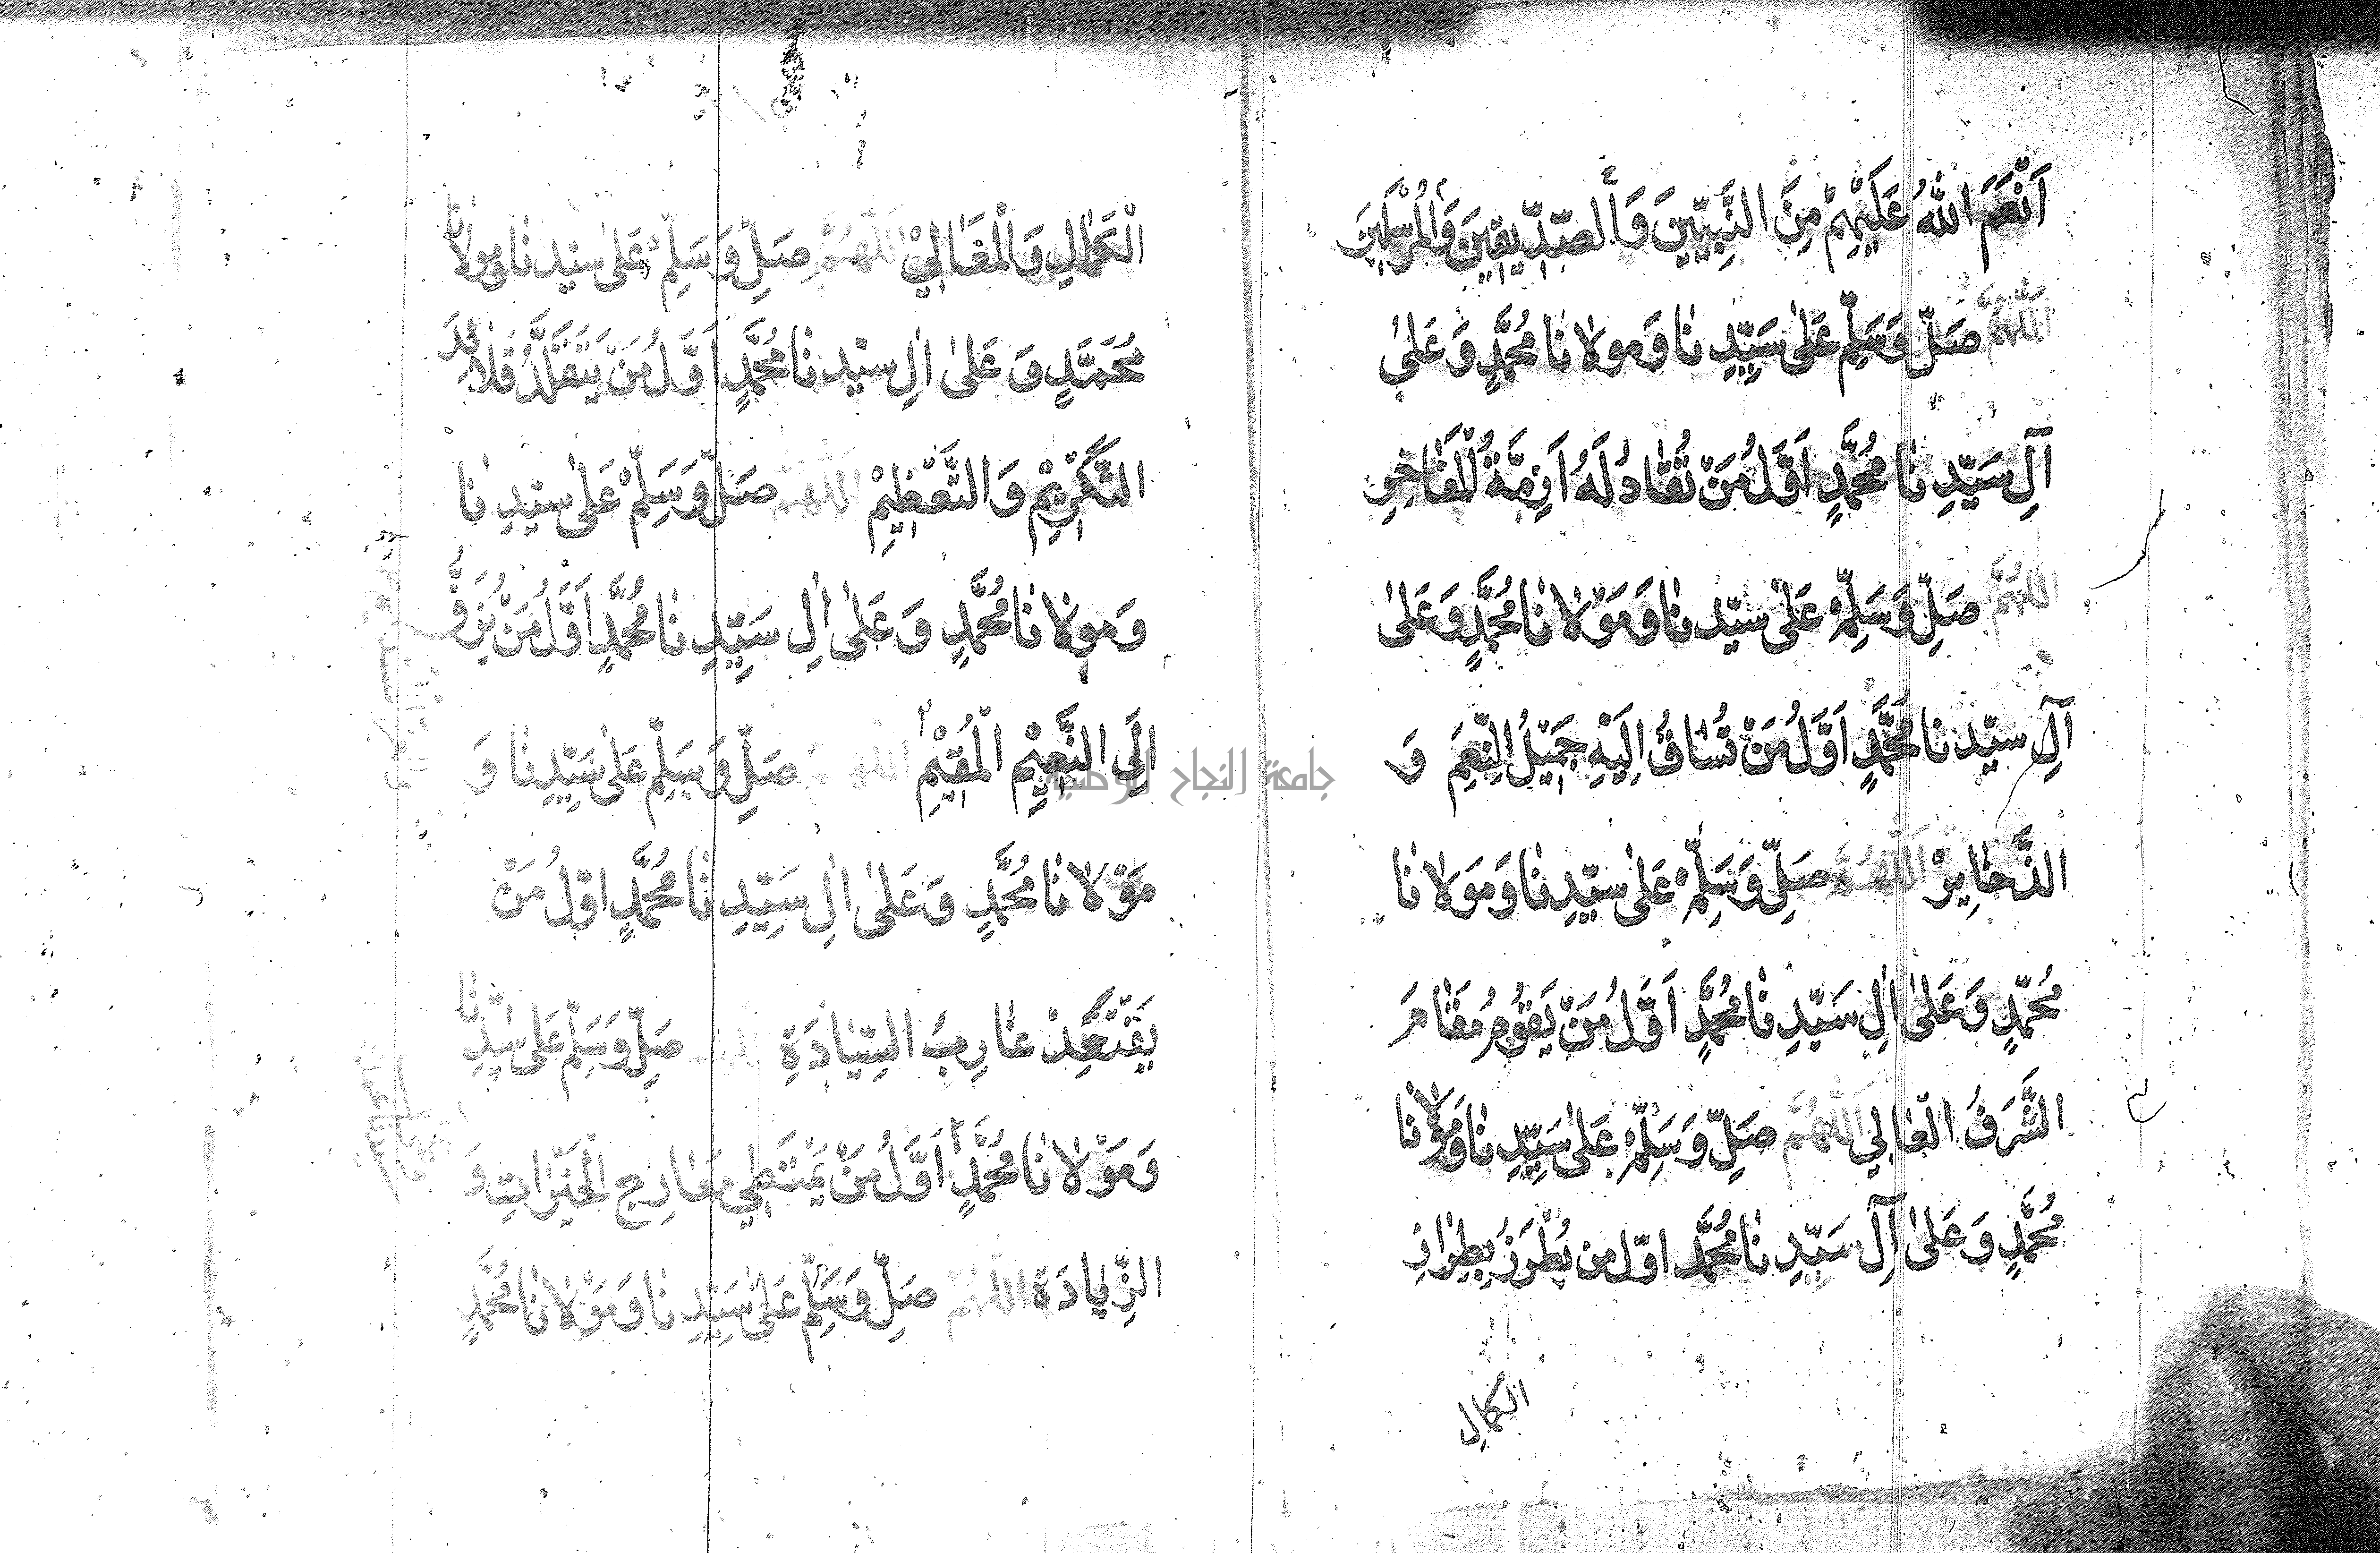 اَنْعَمَ اللهُ عَلَيْهِمْ مِنَ النَّبِيّينَ وَالصِّدّيقينَ وَالْمُرْسَلينَ
اَللّٰهُمَّ صَلِّ وَسَلِّمْ عَلىٰ سَيِّدِنَا وَمولانَا مُحَمَّدٍ وَعَلىٰ
آلِ سَيِّدِنَا مُحَمَّدٍ اَوَّلُ مَنْ تُقَادُ لَهُ اَزِمَّةُ الْمَفَاخِرِ
اللّٰهُمَّ صَلِّ وَسَلِّمْ عَلىٰ سيّدِنَا وَمَوْلانَا مُحَمَّدٍ وَعَلىٰ
آلِ سيّدِنا مُحَمَّدٍ اَوَّلُ مَنْ تُسَاقُ اِلَيْهِ جَمِيْلُ النِّعَمِ وَ
الذَّخَايِرْ اَللّٰهُمَّ صَلِّ وَسَلِّمْ عَلىٰ سيّدِنَا وَمَولانَا
مُحَمَّدٍ وَعَلىٰ اٰلِ سَيّدِنَا مُحَمَّدٍ اَوَّلُ مَنْ يَقُوْمُ مَقَامَ
الشَّرَفُ الْعَالِي اَللّٰهُمَّ صَلِّ وَسَلِّمْ عَلىٰ سَيِّدِنَا وَمَولانَا
مُحَمَّدٍ وَعَلىٰ آلِ سَيّدِنَا مُحَمَّد اوّل من يُطْرَزُ بِطِرَازِ
الكمالِ
الْكَمَالِ وَالْمَعَالِيْ اَللّٰهُمَّ صَلِّ وَسَلِّمْ عَلىٰ سيّدِنَا ومولانَا
مُحَمَّدٍ وَعَلىٰ اٰلِ سيّدِنَا مُحَمَّدٍ اَوَّلُ مَنْ يَتَقَلَّدُ قَلاَئِدَ
التَّكْرِيْمِ وَالتَّعْظِيْمْ اَللّٰهُمَّ صَلِّ وَسَلِّمْ عَلىٰ سيّدِنَا
وَمولانَا مُحَمَّدٍ وَعَلىٰ اٰلِ سَيِّدِنَا مُحَمَّدٍ اَوَّلُ مَنْ يُزَفُّ
اِلَى النَّعِيْمِ الْمُقِيْمِ اللهم صَلِّ وَسَلِّمْ عَلىٰ سَيِّدِنَا وَ
مَوْلانَا مُحَمَّدٍ وَعَلىٰ اٰلِ سَيِّدِنَا مُحَمَّدٍ اوّلُ مَنْ
يَقْتَعِدْ غَارِبَ السِّيَادَةِ صَلِّ وَسَلِّمْ عَلىٰ سيِّدِنَا
وَمَوْلانَا مُحَمَّدٍ اَوَّلُ مَنْ يَمْتَطِي مَعَارِجِ الْخَيْرَاتِ وَ
الزِّيادَة اللّٰهُمَّ صَلِّ وَسَلِّمْ عَلىٰ سَيِّدِنَا وَمَوْلانَا مُحَمَّدٍ
جامعة النجاح الوطنية